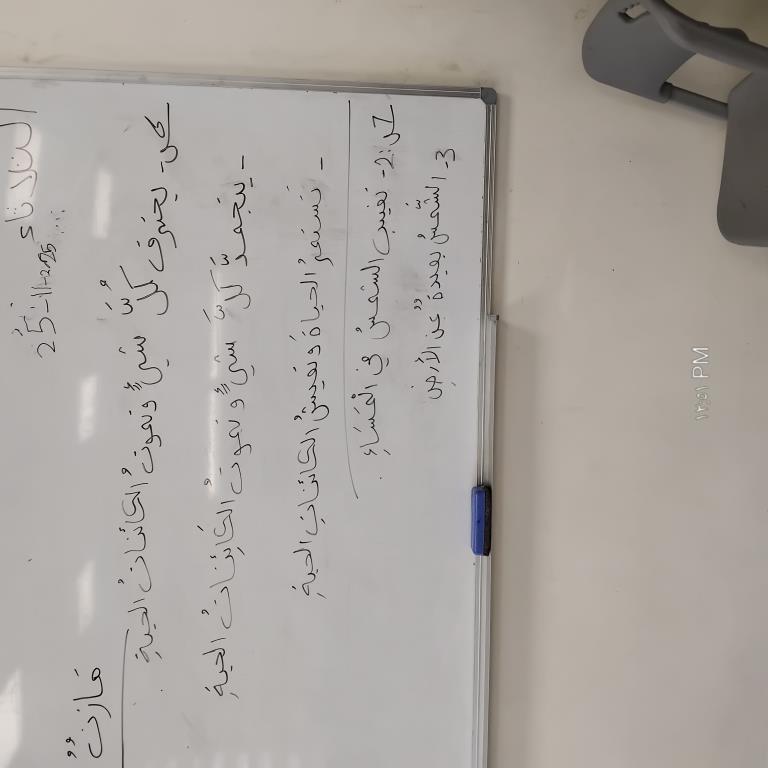 الثلاثاء
25-11-2025
قارنتُ
ص- يحترق كلُّ شيءٍ وتموت الكائناتُ الحيةِ.
- يتجمد كلَّ شيءٍ وتموت الكائِناتُ الحيةِ
- تستمرُ الحياةَ وتعيشُ الكائناتِ الحيةِ
2- تغيب الشمسُ في الْمَسَاءِ.
3- الشّمسُ بعيدةٌ عن الأرضِ
١٢:٥١ PM